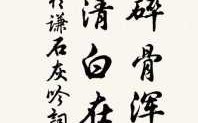 碎骨浑
清白在
谦石灰吟詞